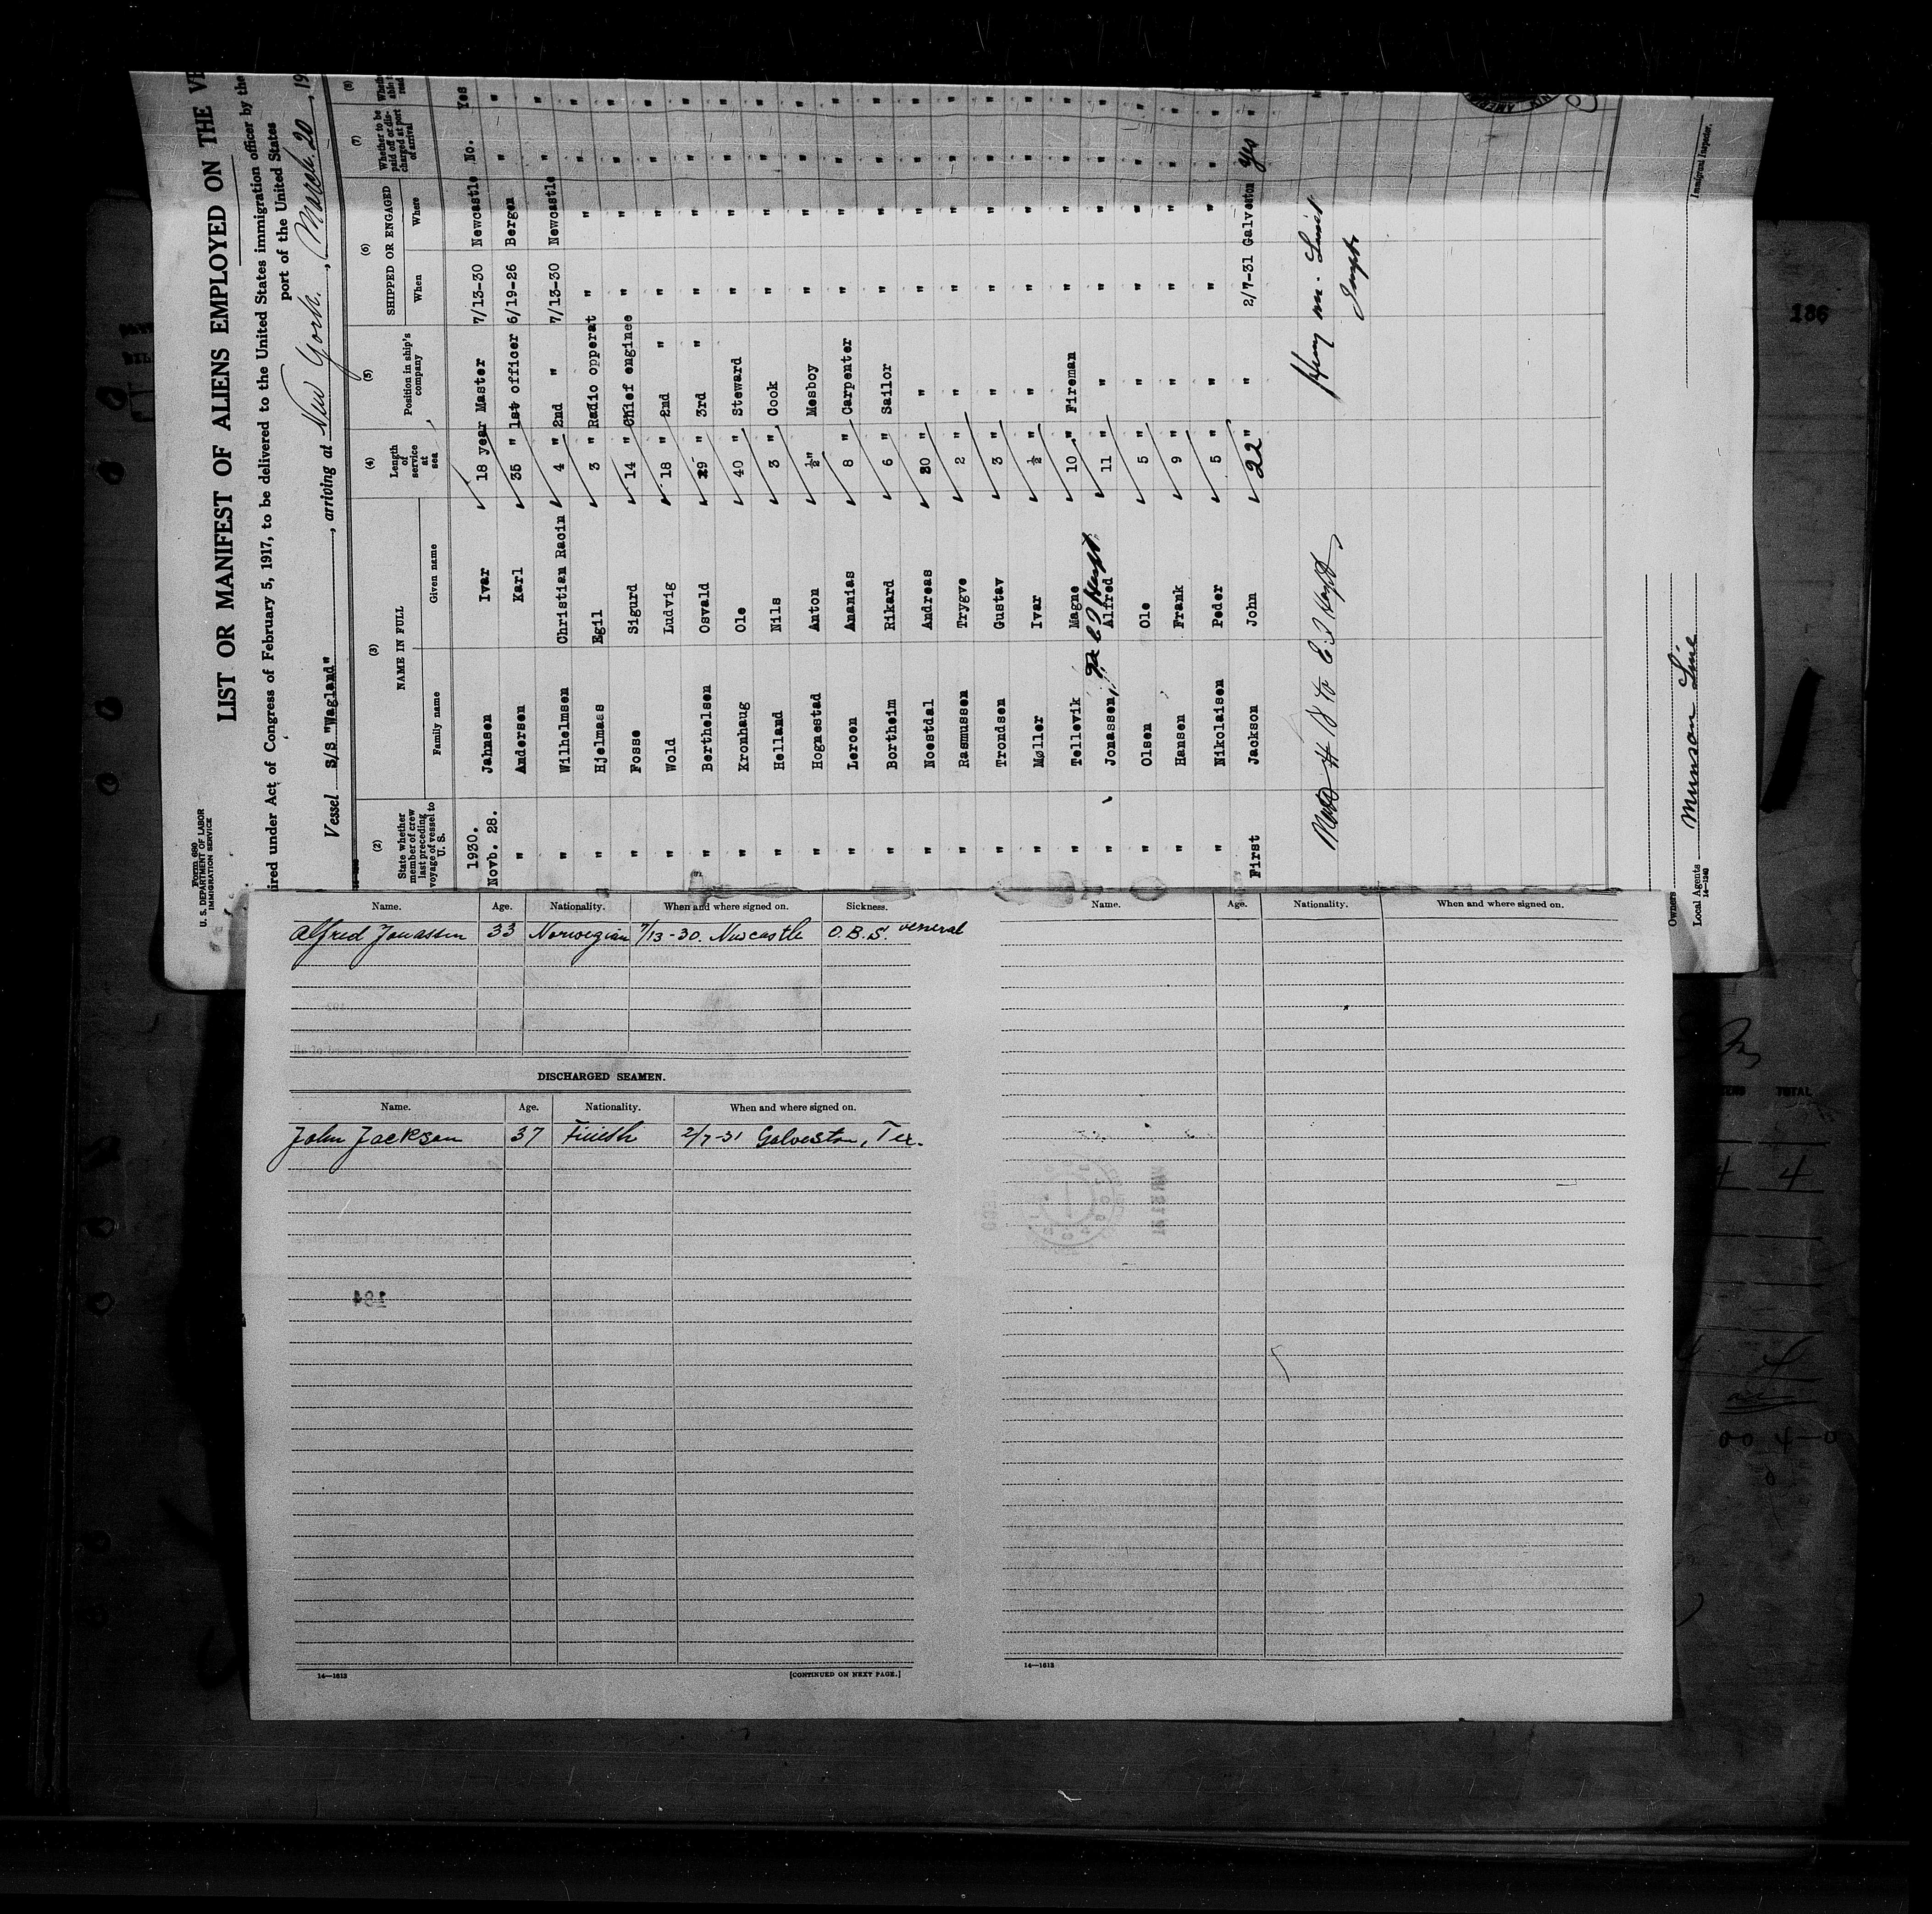 Form 680
U. S. DEPARTMENT OF LABOR
IMMIGRATION SERVICE
LIST OR MANIFEST OF ALIENS EMPLOYED ON THE VE
ired under Act of Congress of February 5, 1917, to be delivered to the United States immigration officer by the
port of the United States
Vessel S/S "Wagland", arriving at New York, March 20, 19
(2) (3) (4) (5) (6) (7) (8)
State whether member of crew last preceding voyage of vessel to U. S. NAME IN FULL Length of service at sea Position in ship's company SHIPPED OR ENGAGED Whether to be paid off or discharged at port of arrival
Family name Given name When Where
1930.
Novb. 28. Jahnsen Ivar 18 year Master 7/13-30 Newcastle No. Yes
" Andersen Karl 35 " 1st officer 6/19-26 Bergen " "
" Wilhelmsen Christian Racin 4 " 2nd " 7/13-30 Newcastle " "
" Hjelmaas Egil 3 " Radio opperat " " " "
" Fosse Sigurd 14 " Chief enginee " " " "
" Wold Ludvig 18 " 2nd " " " " "
" Berthelsen Osvald 29 " 3rd " " " " "
" Kronhaug Ole 40 " Steward " " " "
" Helland Nils 3 " Cook " " " "
" Hognestad Anton ½" Mesboy " " " "
" Leroen Ananias 8 " Carpenter " " " "
" Bortheim Rikard 6 " Sailor " " " "
" Noestdal Andreas 30 " " " " " "
" Rasmussen Trygve 2 " " " " " "
" Trondsen Gustav 3 " " " " " "
" Møller Ivar ½ " " " " " "
" Tellevik Magne 10 " Fireman " " " "
" Jonassen, Alfred 11 " " " " " "
" Olsen Ole 5 " " " " " "
" Hansen Frank 9 " " " " " "
" Nikolaisen Peder 5 " " " " " "
First Jackson John 22 " " 2/7-31 Galveston Yes "
Immigrant Inspector.
Owners
Local Agents Munson Line
14-1240
Name. Age. Nationality. When and where signed on. Sickness.
Alfred Jonassen 33 Norwegian 7/13-30. Newcastle O.B.S. veneral
DISCHARGED SEAMEN.
Name. Age. Nationality. When and where signed on.
John Jackson 37 Finish 2/7-31 Galveston, Tex.
184
14—1613 [CONTINUED ON NEXT PAGE.]
Name. Age. Nationality. When and where signed on.
14—1613
186
TOTAL
4 4